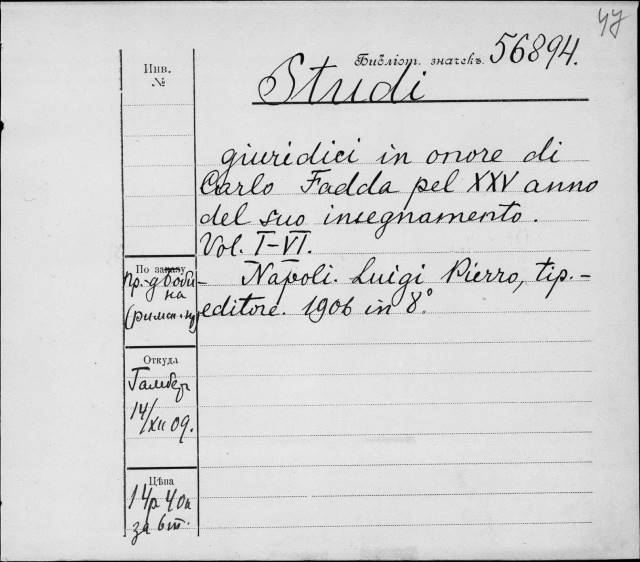 47
Библіот. значекъ. 56894.
Studi
Инв.
№
giuridici in onore di
Carlo Fadda pel XXV anno
del suo insegnamento.
Vol. I-VI.
Napoli. Luigi Pierro, tip.-
editore. 1906 in 8°
По заказу
пр.-д Боби-
на
(римск. пр)
Откуда
Гамбер
14/XII 09.
Цѣна
14р 40к
за 6 т.